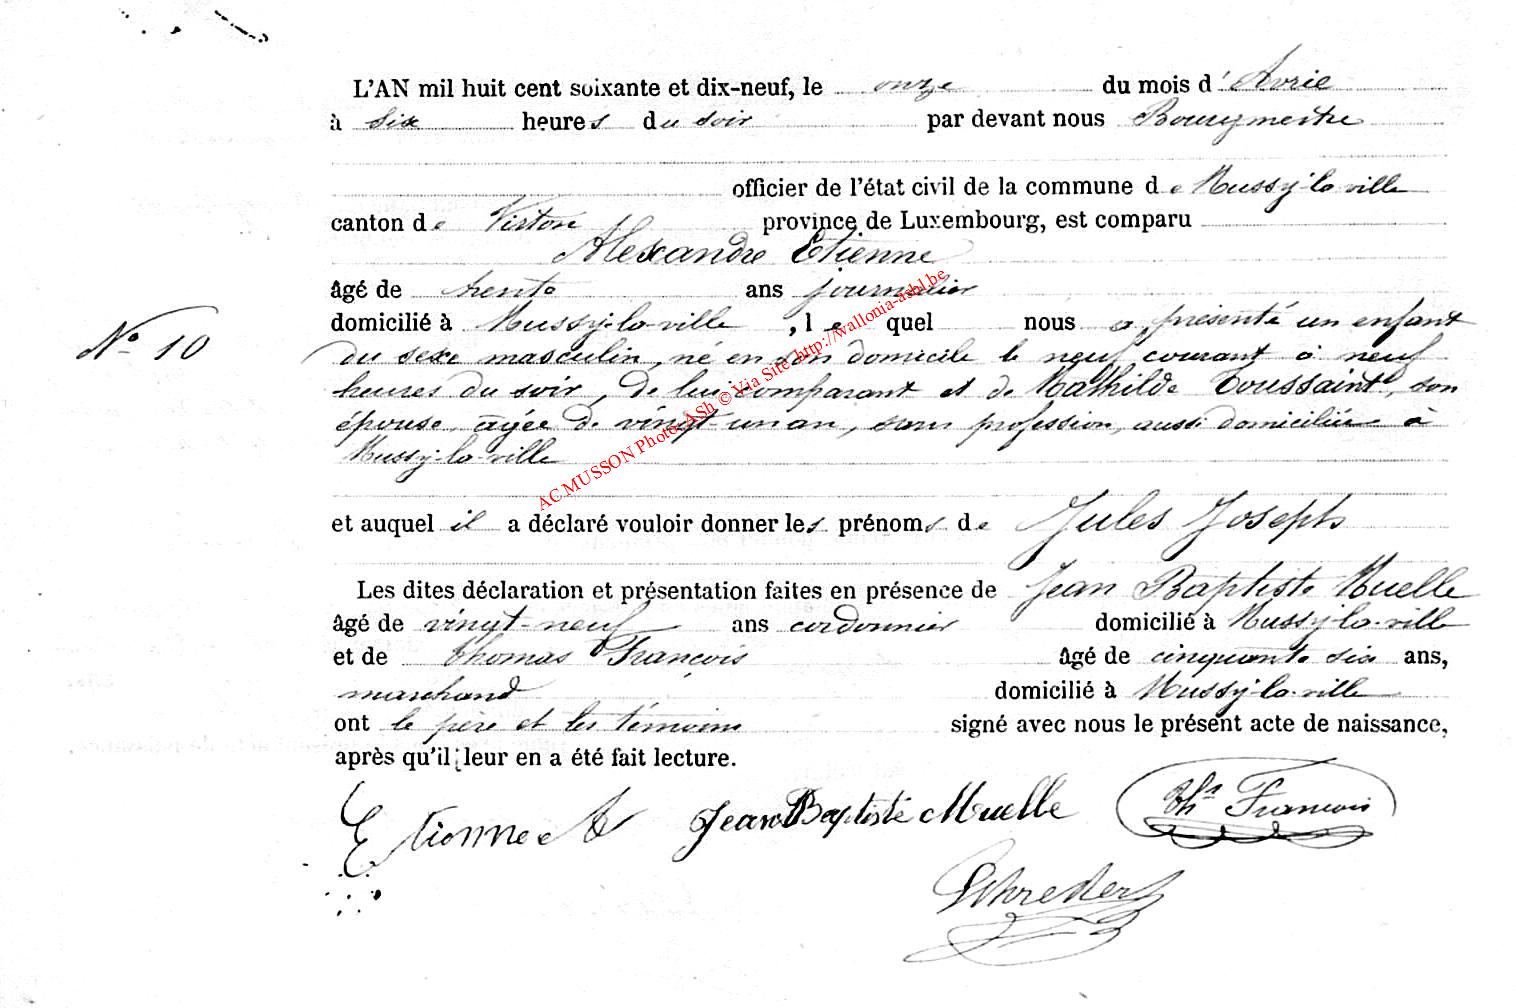 L'AN mil huit cent soixante et dix-neuf, le onze du mois d'Avril
à six heures du soir par devant nous Bourgmestre
officier de l'état civil de la commune de Mussy-la-ville
canton de Virton province de Luxembourg, est comparu
Alexandre Etienne
âgé de trente ans journalier
domicilié à Mussy-la-ville, lequel nous a présenté un enfant
N° 10
du sexe masculin, né en son domicile le neuf courant à neuf
heures du soir, de lui comparant et de Mathilde Toussaint, son
épouse, âgée de vingt-un an, sans profession, aussi domiciliée à
Mussy-la-ville
et auquel il a déclaré vouloir donner les prénoms de Jules Joseph
Les dites déclaration et présentation faites en présence de Jean Baptiste Muelle
âgé de vingt-neuf ans cordonnier domicilié à Mussy-la-ville
et de Thomas François âgé de cinquante six ans,
marchand domicilié à Mussy-la-ville
ont le père et les témoins signé avec nous le présent acte de naissance,
après qu'il leur en a été fait lecture.
Etienne A Jean Baptiste Muelle Ths François
AC MUSSON Photo: ASh © Via Site http://wallonia-asbl.be